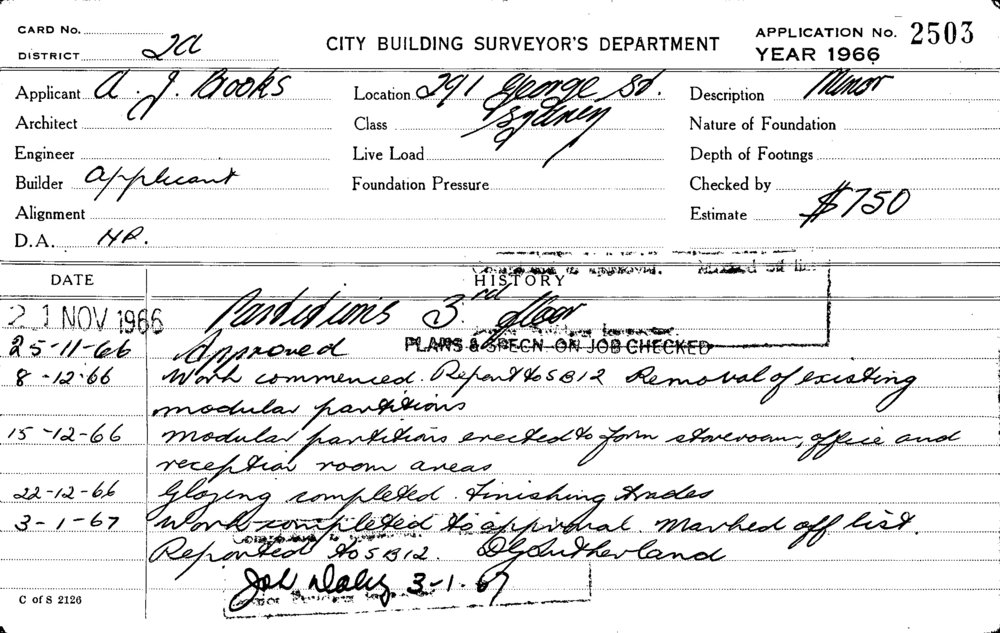 CARD No.
DISTRICT 2a
CITY BUILDING SURVEYOR'S DEPARTMENT
APPLICATION No. 2503
YEAR 1966
Applicant A. J. Books
Location 291 George St. Sydney
Description Minor
Architect
Class
Nature of Foundation
Engineer
Live Load
Depth of Footings
Builder Applicant
Foundation Pressure
Checked by
Alignment
Estimate $750
D.A.
DATE
HISTORY
21 NOV 1966 Partitions 3rd floor
25-11-66 Approved PLANS & SPECN. ON JOB CHECKED
8-12-66 Work commenced. Report to SB12 Removal of existing
modular partitions
15-12-66 Modular partitions erected to form storeroom, office and
reception room areas
22-12-66 Glazing completed. Finishing trades
3-1-67 Work completed to approval. Marked off list
Reported to SB12. DG Sutherland
3-1-67
C of S 2126